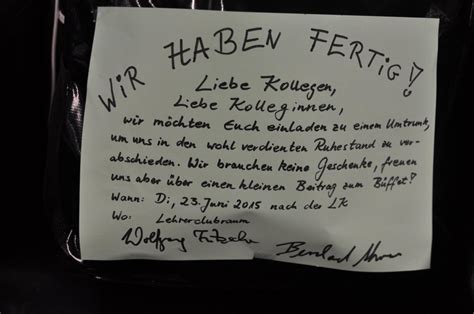 WIR HABEN FERTIG!
Liebe Kollegen,
Liebe Kolleginnen,
wir möchten Euch einladen zu einem Umtrunk,
um uns in den wohl verdienten Ruhestand zu ver-
abschieden. Wir brauchen keine Geschenke, freuen
uns aber über einen kleinen Beitrag zum Büffet!
Wann: Di, 23. Juni 2015 nach der LK
Wo: Lehrerclubraum
Wolfgang